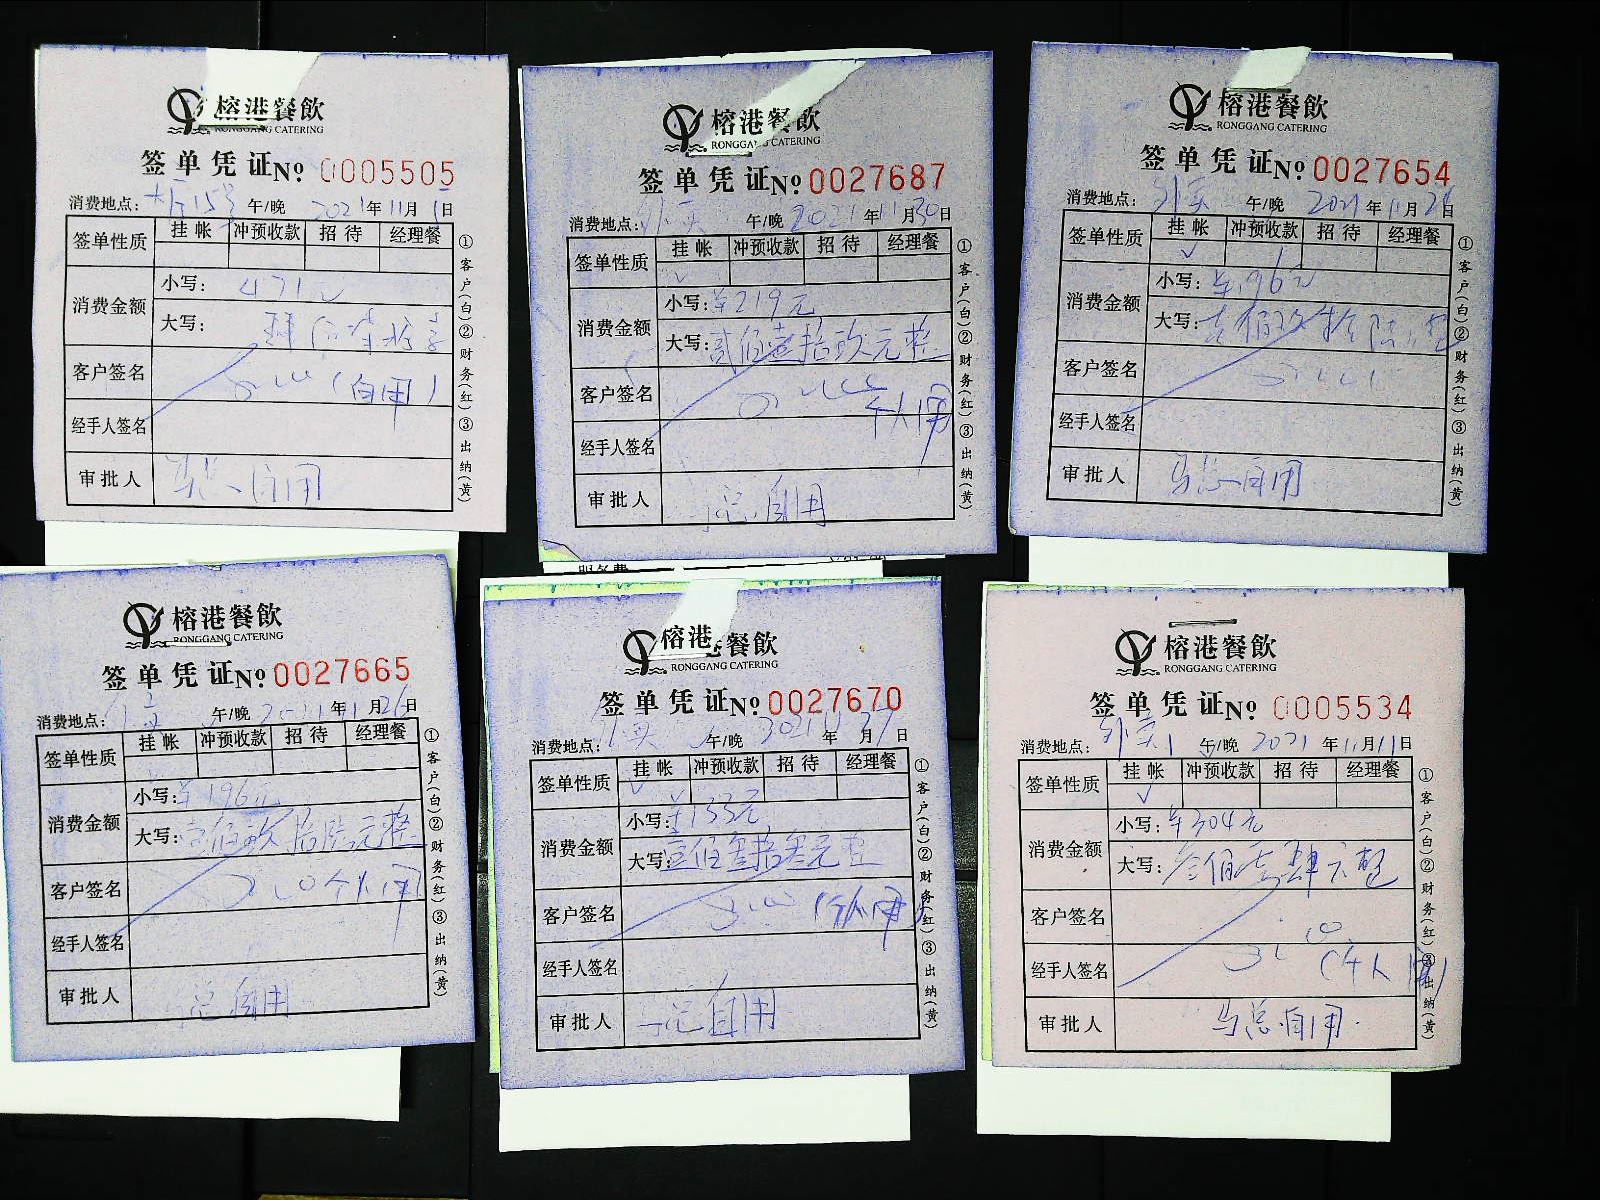 榕港餐飲
RONGGANG CATERING
签单凭证 No 0005505
消费地点: 15号 午/晚 2021年11月1日
签单性质 挂帐 冲预收款 招待 经理餐
消费金额 小写: 471元
大写:
客户签名 (自用)
经手人签名
审批人 马总 自用
①客户(白)②财务(红)③出纳(黄)
榕港餐飲
RONGGANG CATERING
签单凭证 No 0027687
消费地点: 外卖 午/晚 2021年11月30日
签单性质 挂帐 冲预收款 招待 经理餐
✓
消费金额 小写: 219元
大写: 贰佰壹拾玖元整
客户签名 个人用
经手人签名
审批人 总自用
①客户(白)②财务(红)③出纳(黄)
榕港餐飲
RONGGANG CATERING
签单凭证 No 0027654
消费地点: 外卖 午/晚 2021年11月 日
签单性质 挂帐 冲预收款 招待 经理餐
✓
消费金额 小写: 196元
大写: 壹佰玖拾陆元整
客户签名
经手人签名
审批人 马总自用
①客户(白)②财务(红)③出纳(黄)
榕港餐飲
RONGGANG CATERING
签单凭证 No 0027665
消费地点: 外卖 午/晚 2021年11月26日
签单性质 挂帐 冲预收款 招待 经理餐
消费金额 小写: 196元
大写: 壹佰玖拾陆元整
客户签名 个人用
经手人签名
审批人 总自用
①客户(白)②财务(红)③出纳(黄)
服务费
榕港餐飲
RONGGANG CATERING
签单凭证 No 0027670
消费地点: 外卖 午/晚 2021年11月27日
签单性质 挂帐 冲预收款 招待 经理餐
✓
消费金额 小写: 133元
大写: 壹佰叁拾叁元整
客户签名 (个人用)
经手人签名
审批人 马总自用
①客户(白)②财务(红)③出纳(黄)
榕港餐飲
RONGGANG CATERING
签单凭证 No 0005534
消费地点: 外卖1 午/晚 2021年11月11日
签单性质 挂帐 冲预收款 招待 经理餐
✓
消费金额 小写: 304元
大写: 叁佰零肆元整
客户签名
经手人签名 (个人用)
审批人 马总自用.
①客户(白)②财务(红)③出纳(黄)